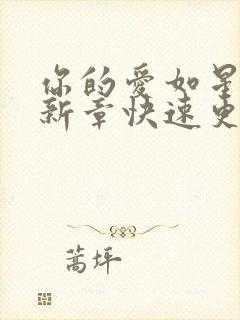 你的爱如星
新章快速更
蒿坪